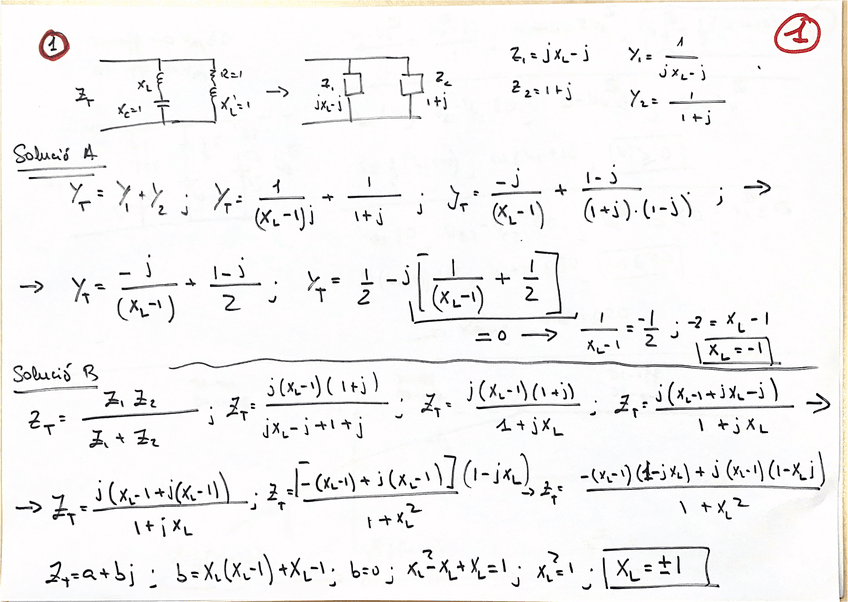 1
1
Z_T X_L X_C=1 R=1 X'_L=1 → Z_1 jX_L-j Z_2 1+j
Z_1 = jX_L-j Y_1 = 1/(jX_L-j)
Z_2 = 1+j Y_2 = 1/(1+j)
Solució A
Y_T = Y_1 + Y_2 ; Y_T = 1/((X_L-1)j) + 1/(1+j) ; Y_T = -j/(X_L-1) + (1-j)/((1+j)·(1-j)) ; →
→ Y_T = -j/(X_L-1) + (1-j)/2 ; Y_T = 1/2 -j[1/(X_L-1) + 1/2]
=0 → 1/(X_L-1) = -1/2 ; -2 = X_L-1
X_L = -1
Solució B
Z_T = Z_1 Z_2/(Z_1+Z_2) ; Z_T = j(X_L-1)(1+j)/(jX_L-j+1+j) ; Z_T = j(X_L-1)(1+j)/(1+jX_L) ; Z_T = j(X_L-1+jX_L-j)/(1+jX_L) →
→ Z_T = j(X_L-1+j(X_L-1))/(1+jX_L) ; Z_T = [-(X_L-1)+j(X_L-1)](1-jX_L)/(1+X_L²) → Z_T = (-(X_L-1)(1-jX_L)+j(X_L-1)(1-X_Lj))/(1+X_L²)
Z_T = a+bj ; b = X_L(X_L-1)+X_L-1 ; b=0 ; X_L²-X_L+X_L=1 ; X_L²=1 ; X_L = ±1